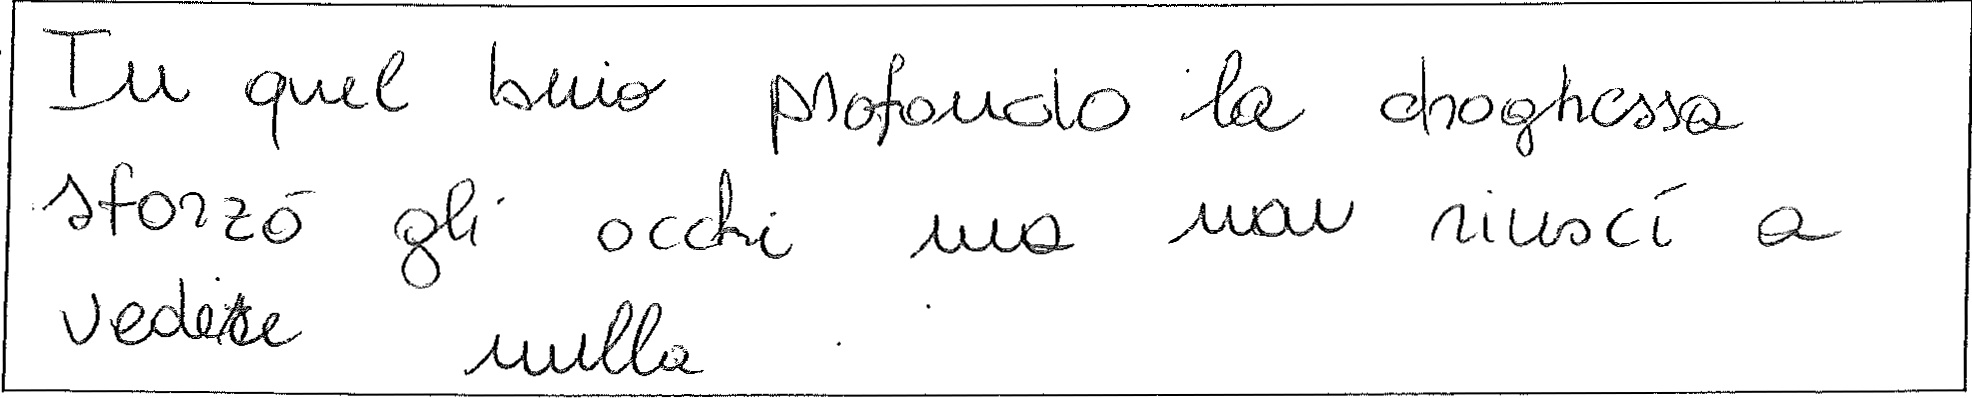 In quel buio profondo la draghessa
sforzò gli occhi ma non riuscì a
vedere nulla